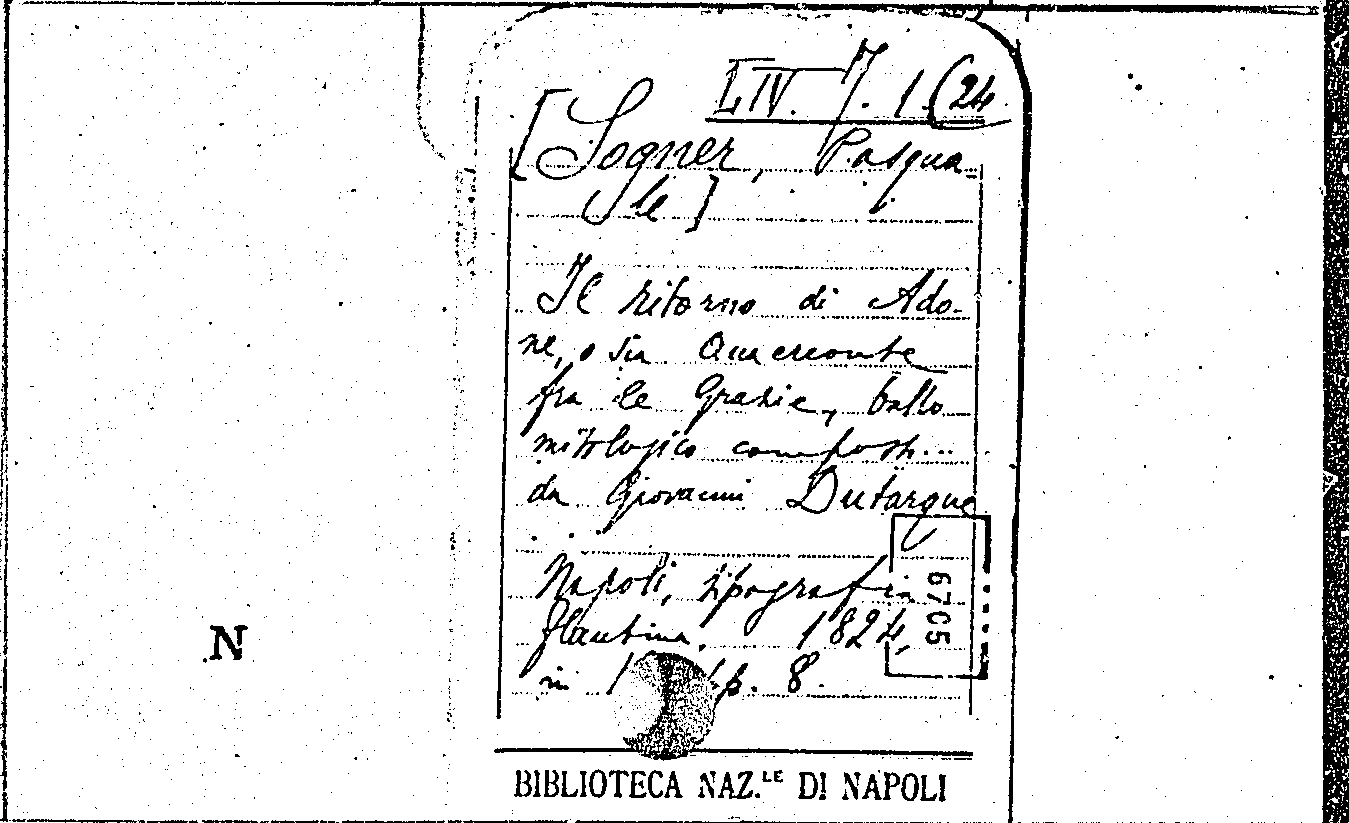 LIV. 7. 1 (24
[Sogner, Pasqua
le]
Il ritorno di Ado-
ne, o sia Anacreonte
fra le Grazie, ballo
mitologico compost...
da Giovanni Dutarque
. . .
Napoli, tipografia
flautina, 1824,
in 1 p. 8.
6705
N
BIBLIOTECA NAZ.LE DI NAPOLI